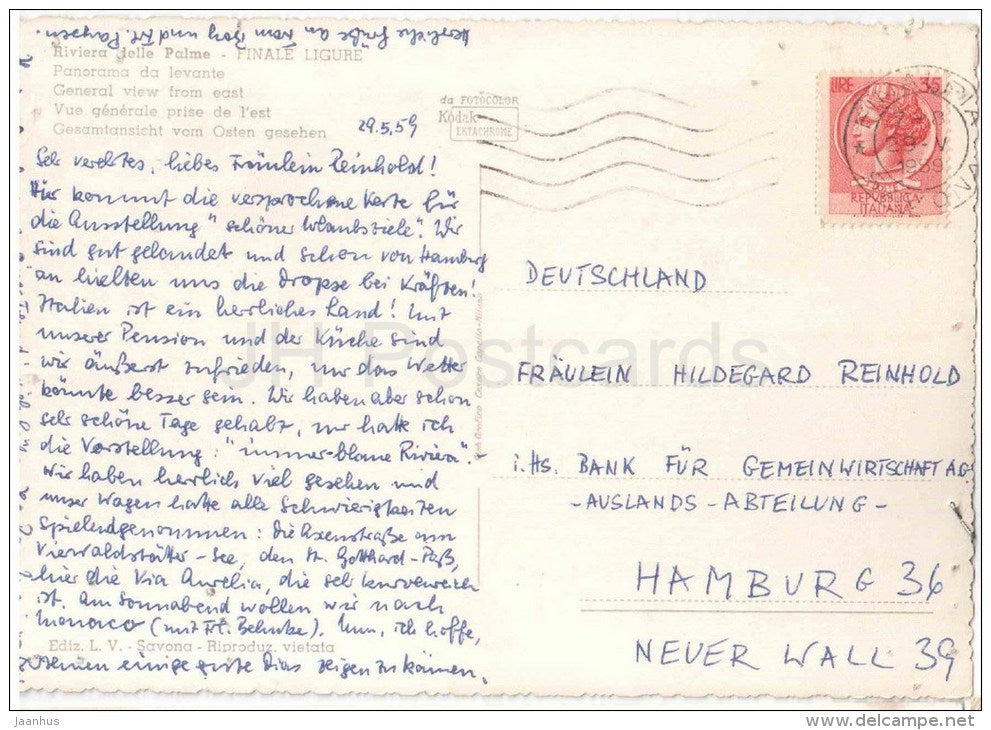 Herzliche Grüße an Frau Borg und Frl.
Riviera delle Palme - FINALE LIGURE
Panorama da levante
General view from east
Vue générale prise de l'est
Gesamtansicht vom Osten gesehen
da FOTOCOLOR
Kodak
EKTACHROME
29.5.59
Sehr verehrtes, liebes Fräulein Reinhold!
Hier kommt die versprochene Karte für
die Ausstellung "schöner Urlaubsziele". Wir
sind gut gelandet und schon von Hamburg
an hielten uns die Dropse bei Kräften!
Italien ist ein herrliches Land! Mit
unserer Pension und der Küche sind
wir äußerst zufrieden, nur das Wetter
könnte besser sein. Wir haben aber schon
sehr schöne Tage gehabt, nur hatte ich
die Vorstellung: "immer-blaue Riviera".
Wir haben herrlich viel gesehen und
unser Wagen hatte alle Schwierigkeiten
spielend genommen: die Axenstraße am
Vierwaldstätter-See, den St. Gotthard-Paß,
hier die Via Aurelia, die sehr kurvenreich
ist. Am Sonnabend wollen wir nach
Monaco (mit Frl. Behnke). Nun, ich hoffe,
Ihnen einige gute Dias zeigen zu können.
Ediz. L. V. - Savona - Riproduz. vietata
LIRE 35
REPVBBLICA
ITALIANA
DEUTSCHLAND
FRÄULEIN HILDEGARD REINHOLD
i.Hs. BANK FÜR GEMEINWIRTSCHAFT AG.
-AUSLANDS-ABTEILUNG-
HAMBURG 36
NEUER WALL 39
JH Postcards
Jaanhus
www.delcampe.net